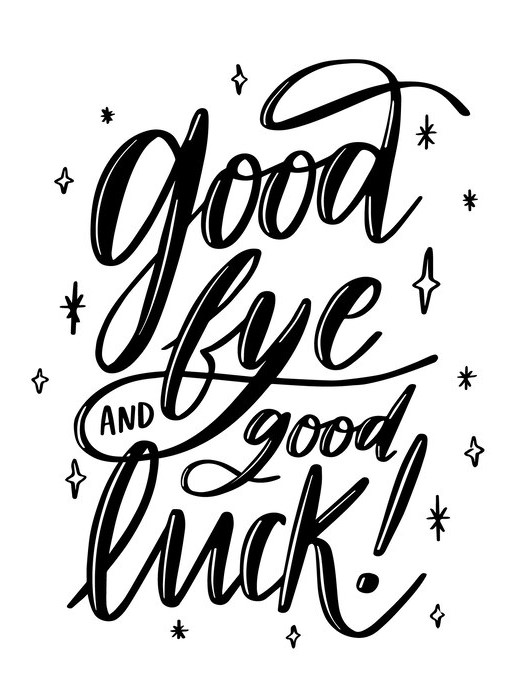 good
bye
AND good
luck!